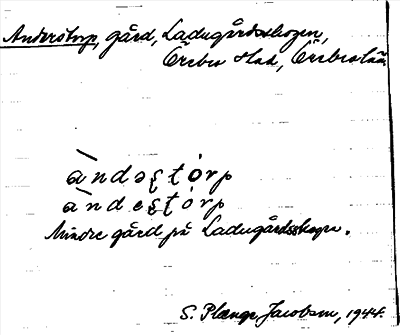 Anderstorp, gård, Ladugårdsskogen,
Örebro Hd, Örebro län
àndəʂʈórp
àndeʂʈórp
Mindre gård på Ladugårdsskogen.
S. Plænge Jacobson, 1944.